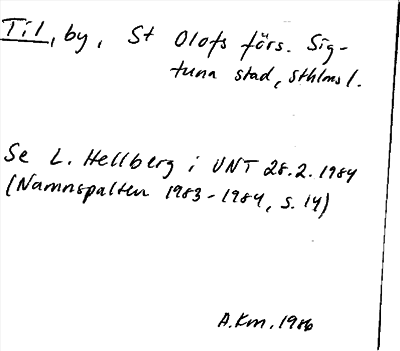 Til, by, St Olofs förs. Sig-
tuna stad, Sthlms l.
Se L. Hellberg i UNT 28.2.1984
(Namnspalten 1983-1984, s. 14)
A.Km. 1986